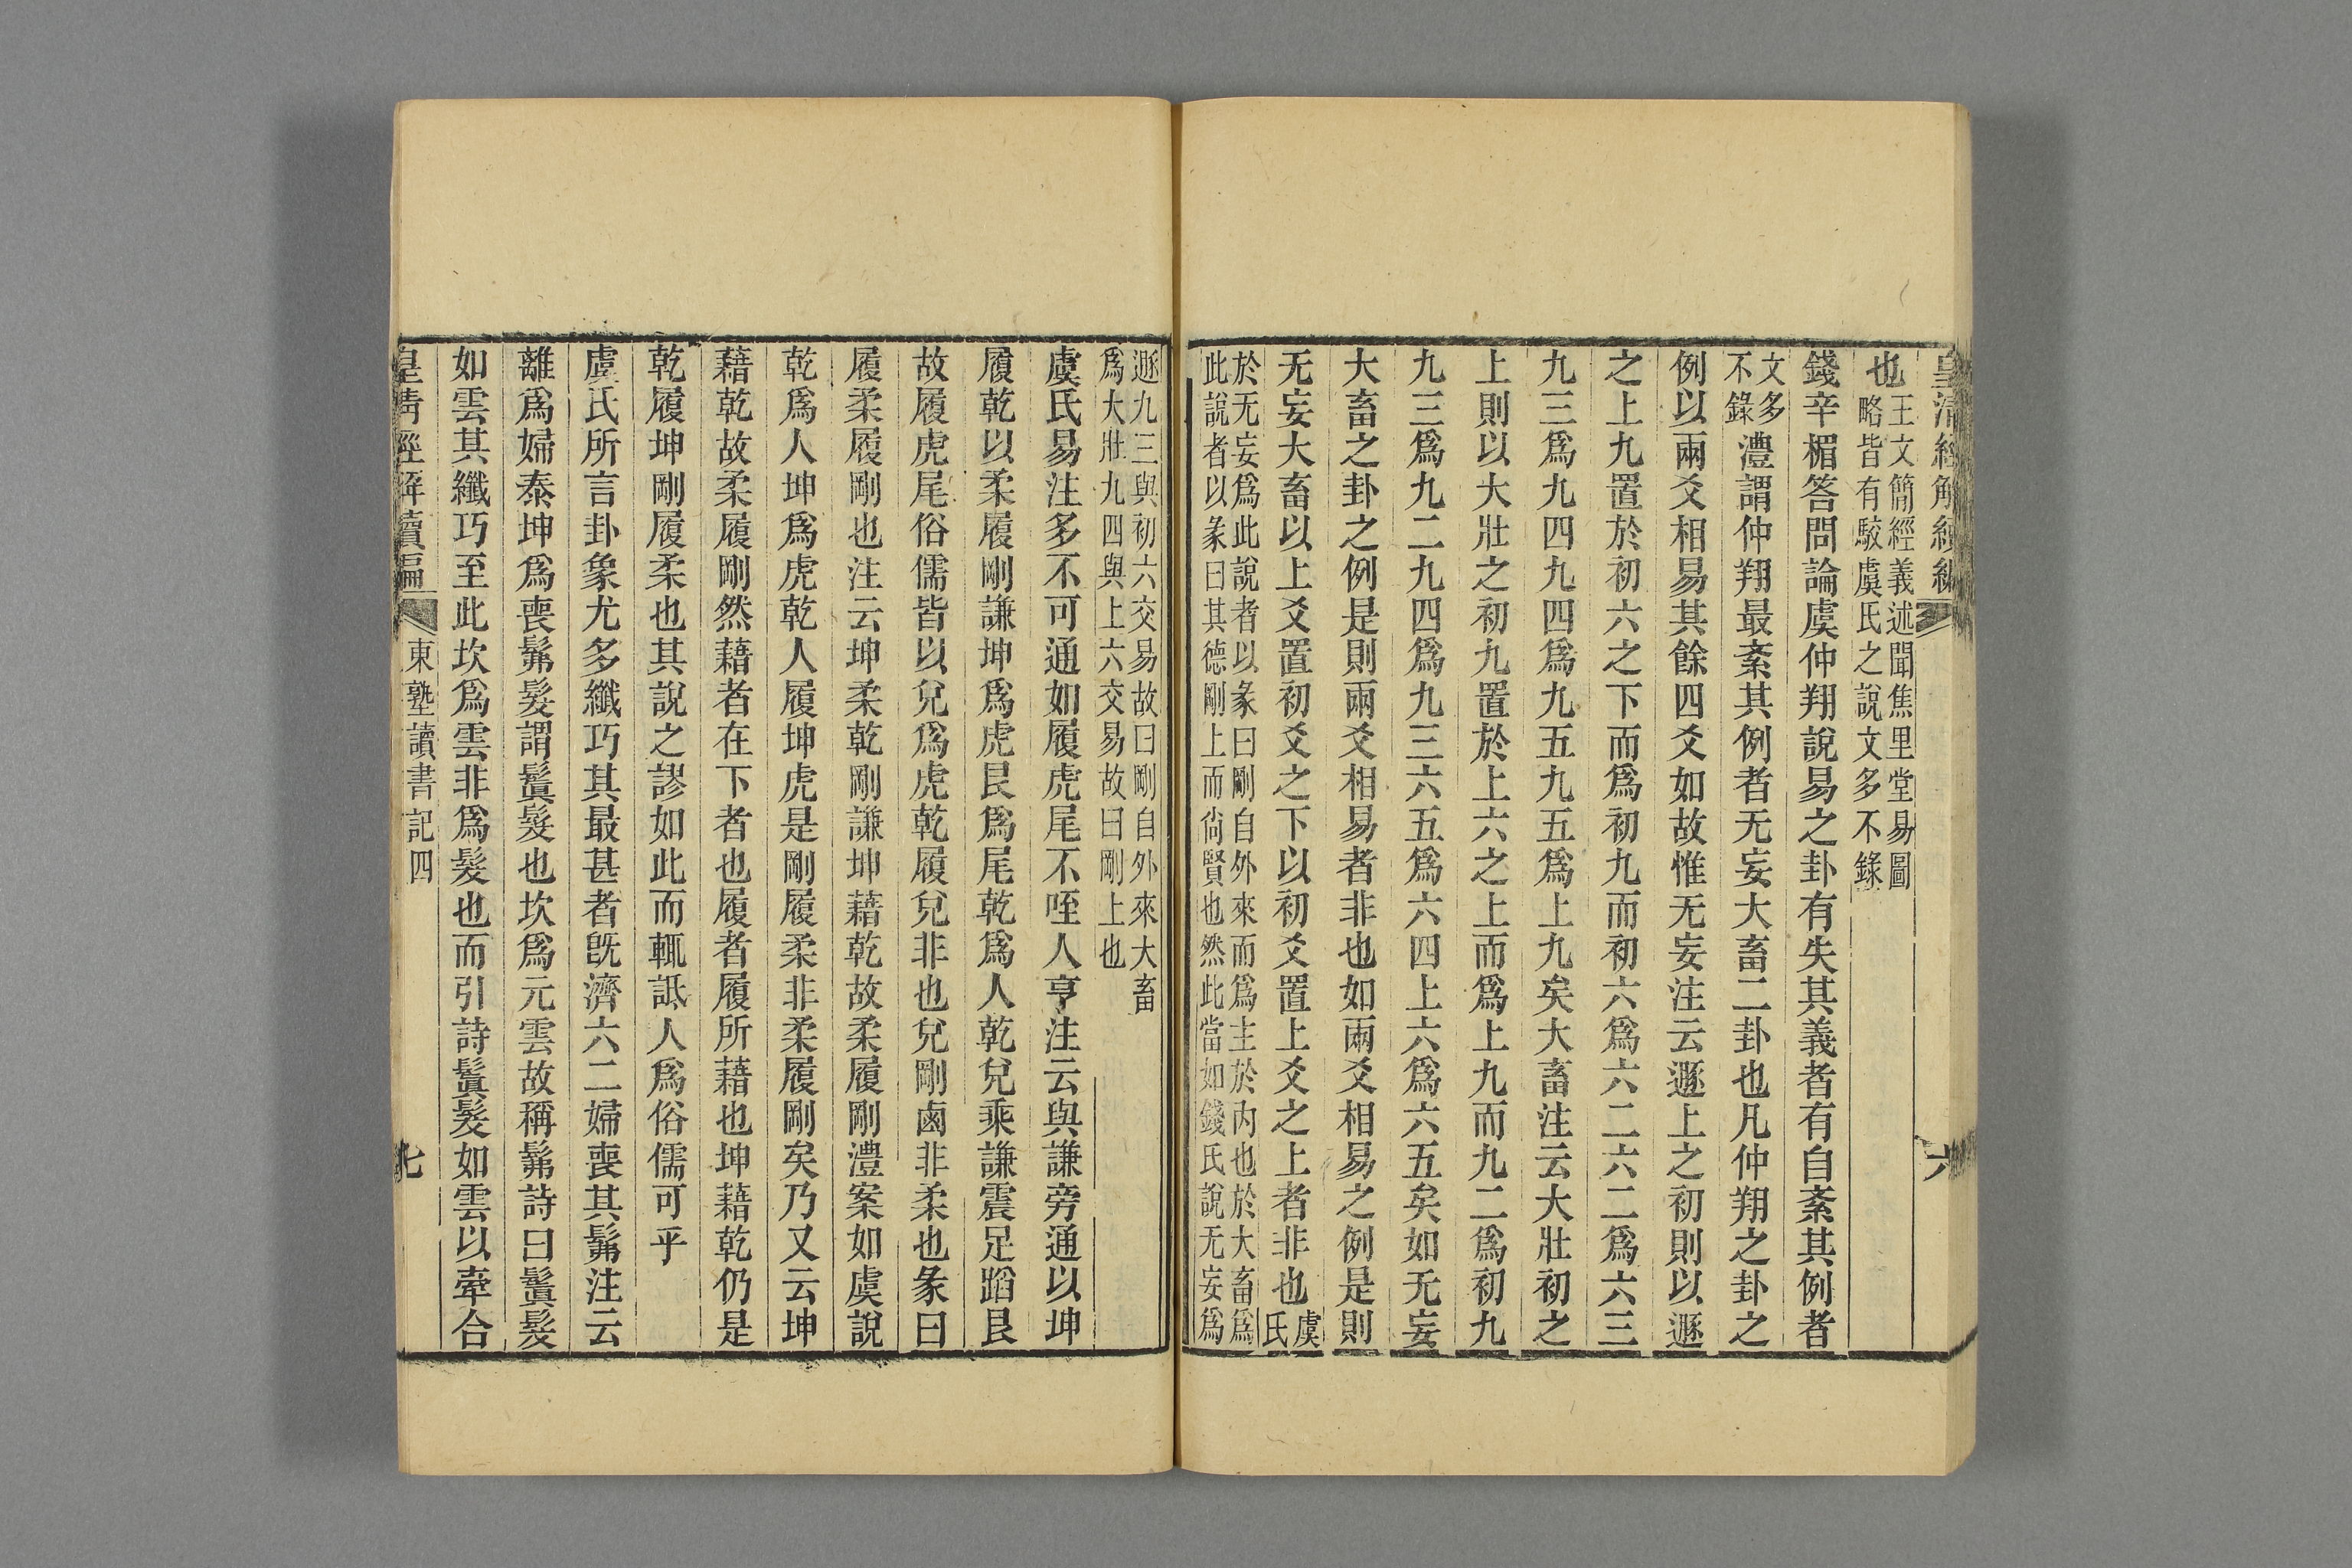 皇清經解續編
六
也王文簡經義述聞焦里堂易圖
略皆有駁虞氏之說文多不錄
錢辛楣答問論虞仲翔說易之卦有失其義者有自紊其例者
文多
不錄
澧謂仲翔最紊其例者无妄大畜二卦也凡仲翔之卦之
例以兩爻相易其餘四爻如故惟无妄注云遯上之初則以遯
之上九置於初六之下而爲初九而初六爲六二六二爲六三
九三爲九四九四爲九五九五爲上九矣大畜注云大壯初之
上則以大壯之初九置於上六之上而爲上九而九二爲初九
九三爲九二九四爲九三六五爲六四上六爲六五矣如无妄
大畜之卦之例是則兩爻相易者非也如兩爻相易之例是則
无妄大畜以上爻置初爻之下以初爻置上爻之上者非也
虞
氏
於无妄爲此說者以彖曰剛自外來而爲主於內也於大畜爲
此說者以彖曰其德剛上而尙賢也然此當如錢氏說无妄爲
遯九三與初六交易故曰剛自外來大畜
爲大壯九四與上六交易故曰剛上也
虞氏易注多不可通如履虎尾不咥人亨注云與謙旁通以坤
履乾以柔履剛謙坤爲虎艮爲尾乾爲人乾兌乘謙震足蹈艮
故履虎尾俗儒皆以兌爲虎乾履兌非也兌剛鹵非柔也彖曰
履柔履剛也注云坤柔乾剛謙坤藉乾故柔履剛澧案如虞說
乾爲人坤爲虎乾人履坤虎是剛履柔非柔履剛矣乃又云坤
藉乾故柔履剛然藉者在下者也履者履所藉也坤藉乾仍是
乾履坤剛履柔也其說之謬如此而輒詆人爲俗儒可乎
虞氏所言卦象尤多纖巧其最甚者旣濟六二婦喪其髴注云
離爲婦泰坤爲喪髴髮謂鬒髮也坎爲元雲故稱髴詩曰鬒髮
如雲其纖巧至此坎爲雲非爲髮也而引詩鬒髮如雲以牽合
皇清經解續編
東塾讀書記四
七